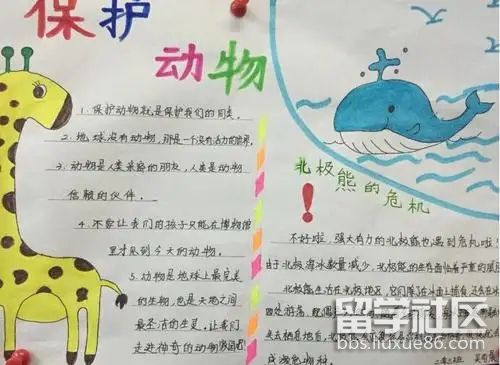 保护
动物
1. 保护动物就是保护我们的同类。
2. 地球没有动物，那是一个没有活力的世界。
3. 动物是人类亲密的朋友，人类是动物
信赖的伙伴。
4. 不要让我们的孩子只能在博物馆
里才见到今天的动物。
5. 动物是地球上最完美
的生物，也是天地之间
最圣洁的生灵，让我们
走进神奇的动物
北极熊的危机
！
不好啦，强大有力的北极熊也遇到危机啦！
由于北极海冰数量减少，北极熊的生存面临着严重的
北极熊生活在北极地区，它们在冰面上捕食，还在冰
四处游荡
去栖息地后，北
成濒危物种。
留学社区
bbs.liuxue86.com